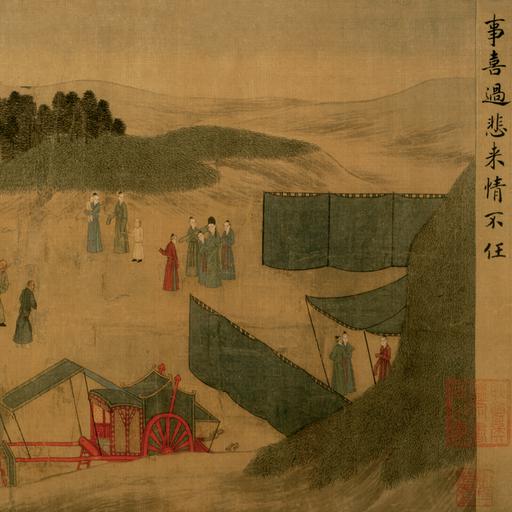 事喜過悲来情不任